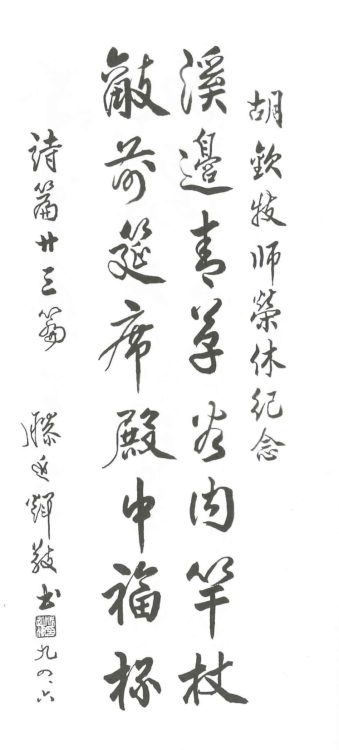 胡欽牧師榮休紀念
溪邊青草谷內竿杖
敵前筵席殿中福杯
詩篇廿三篇
滕近輝敬書
九四、六